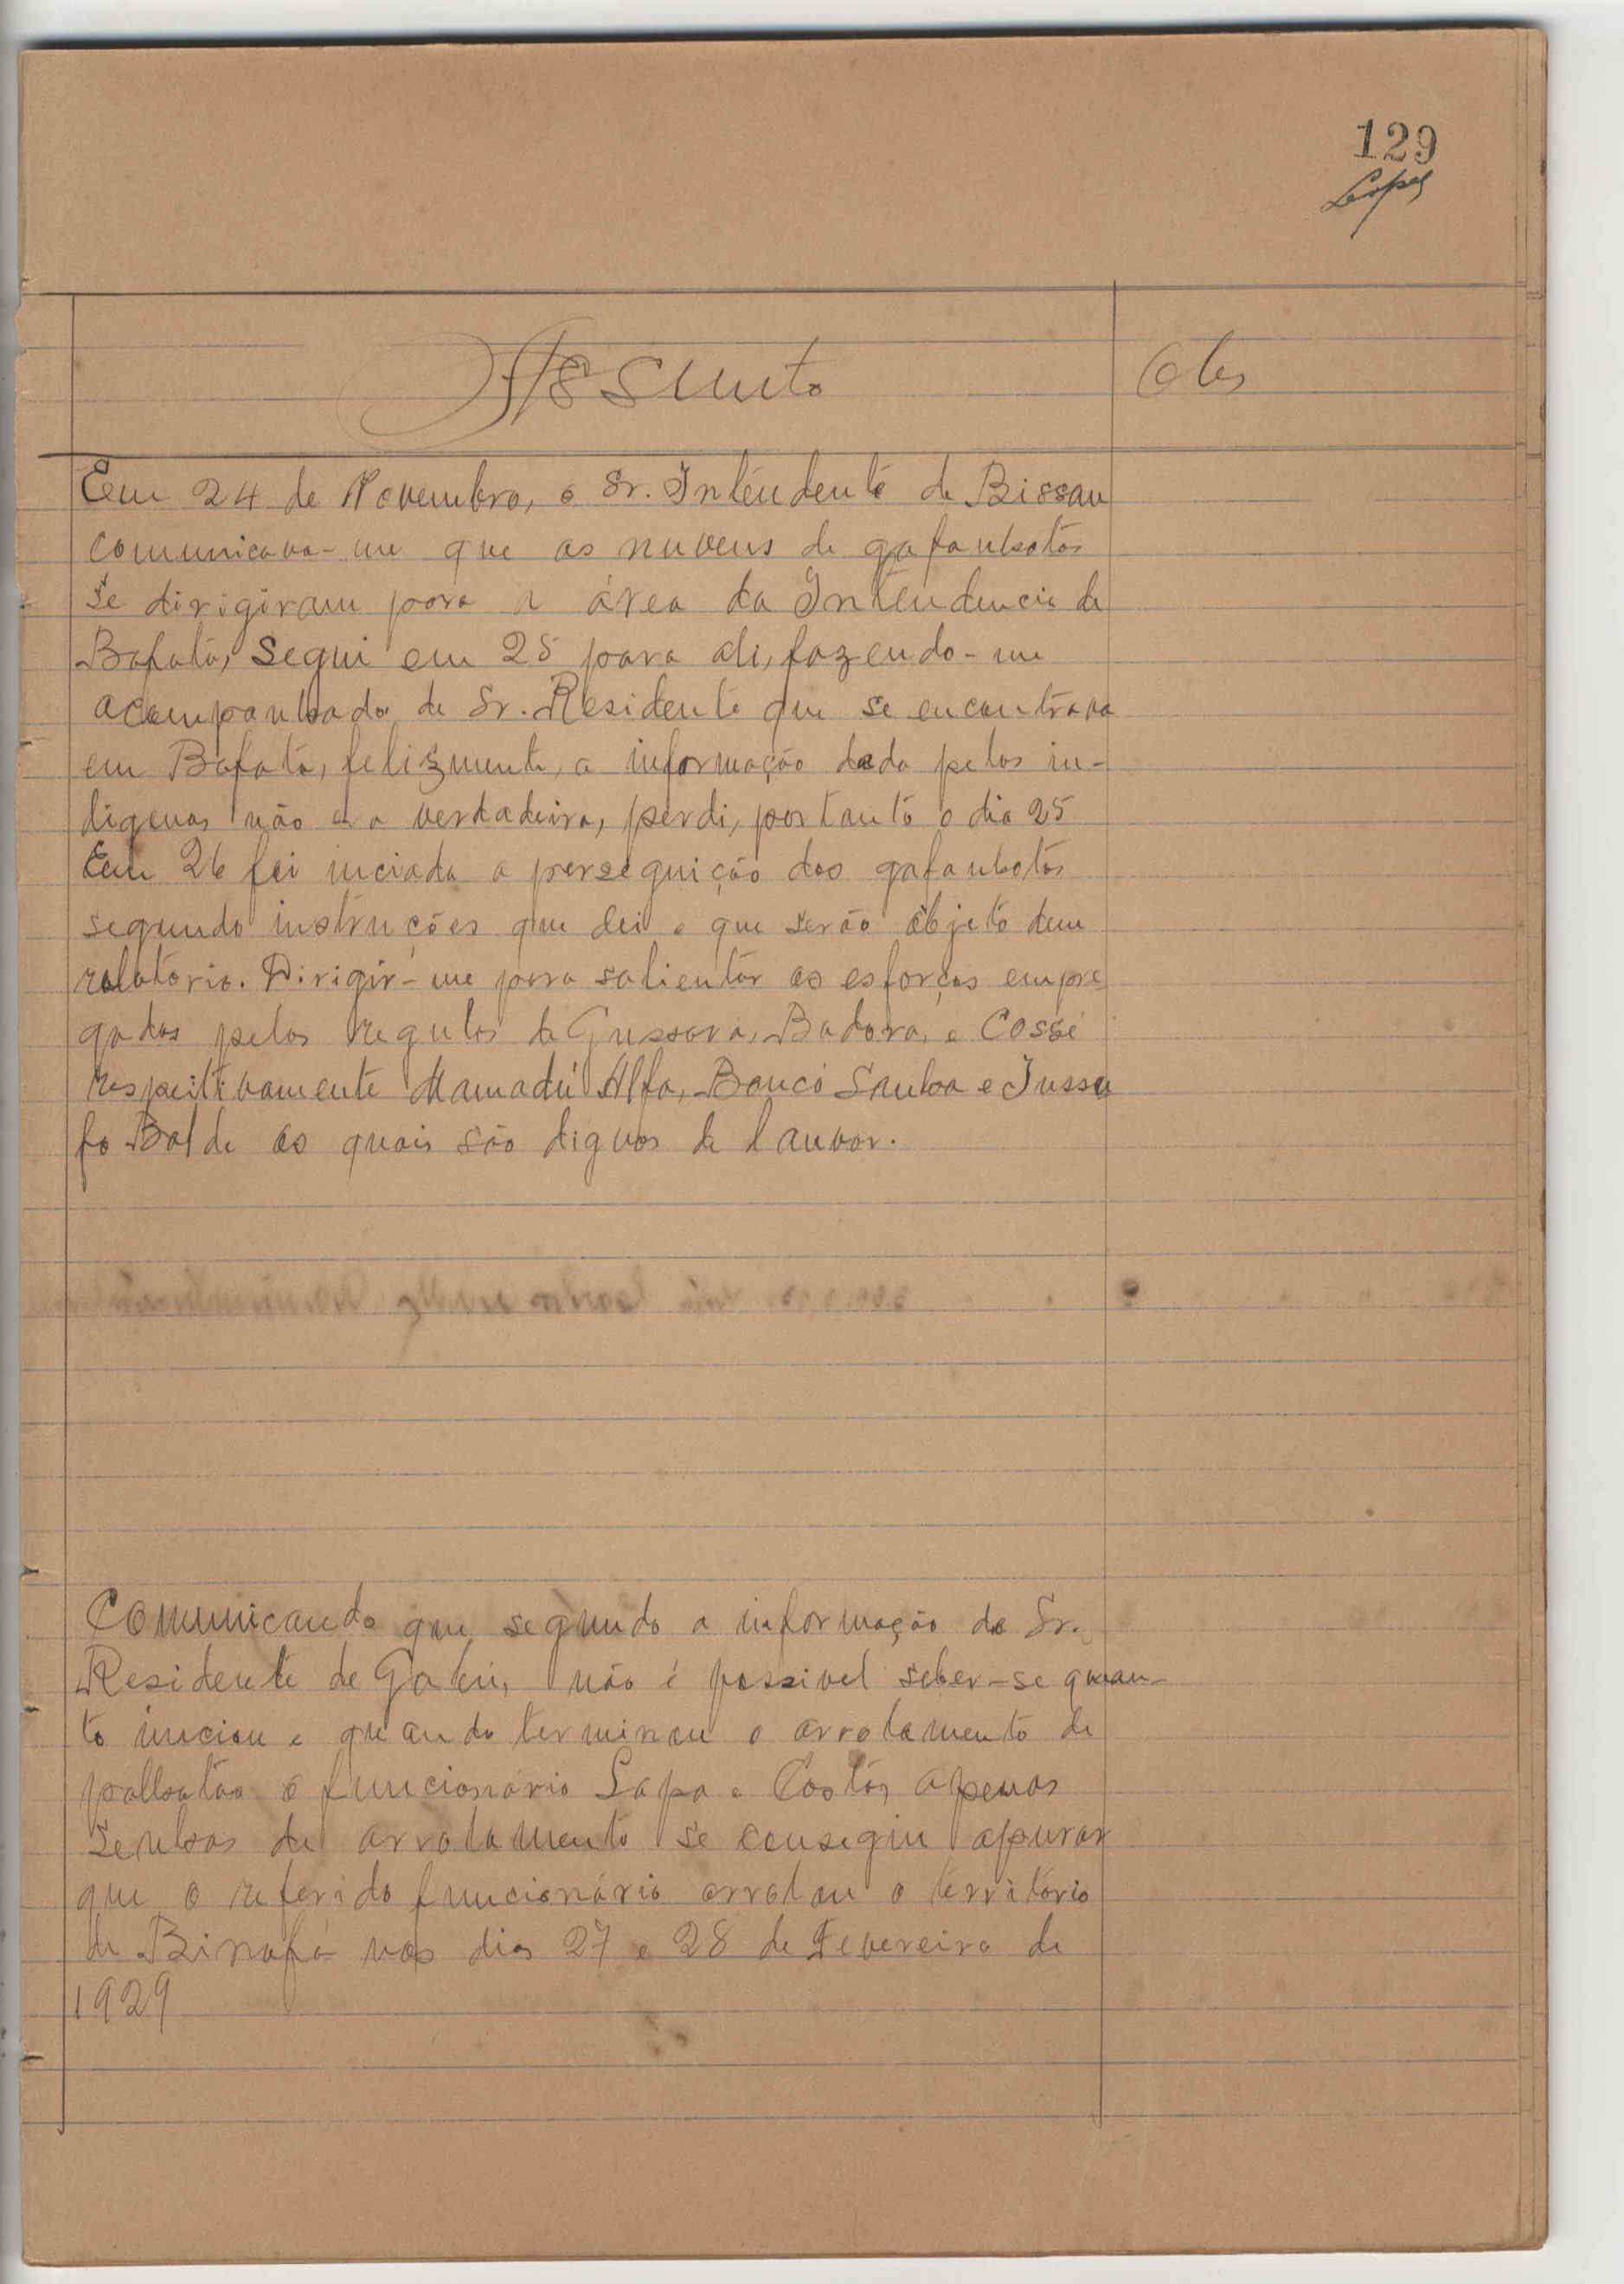 129
Lopes
Assunto
Obs
Em 24 de Novembro, o Sr. Intendente de Bissau
comunicava-me que as nuvens de gafanhotos
se dirigiram para a área da Intendencia de
Bafatá, segui em 25 para ali, fazendo-me
acompanhado do Sr. Residente que se encontrava
em Bafatá, felizmente, a informação dada pelos in-
digenas não era verdadeira, perdi, portanto o dia 25
Em 26 foi inciada a perseguição dos gafanhotos
segundo instruções que dei e que serão objeto dum
relatorio. Dirigir-me para salientar os esforços empre
gados pelos regulos de Gussara, Badora, e Cossé
respeitivamente Mamadú Alfa, Boncó Sanha e Jussu
fo Balde os quais são dignos de lauvor.
Comunicando que segundo a informação do Sr.
Residente de Gabú, não é possivel seber-se quan-
to iniciou e quando terminou o arrolamento de
palhotas o funcionário Lapa e Costa, apenas
senhas de arrolamento se consegiu apurar
que o referido funcionário arrolou o território
de Binafá nos dias 27 e 28 de Fevereiro de
1929